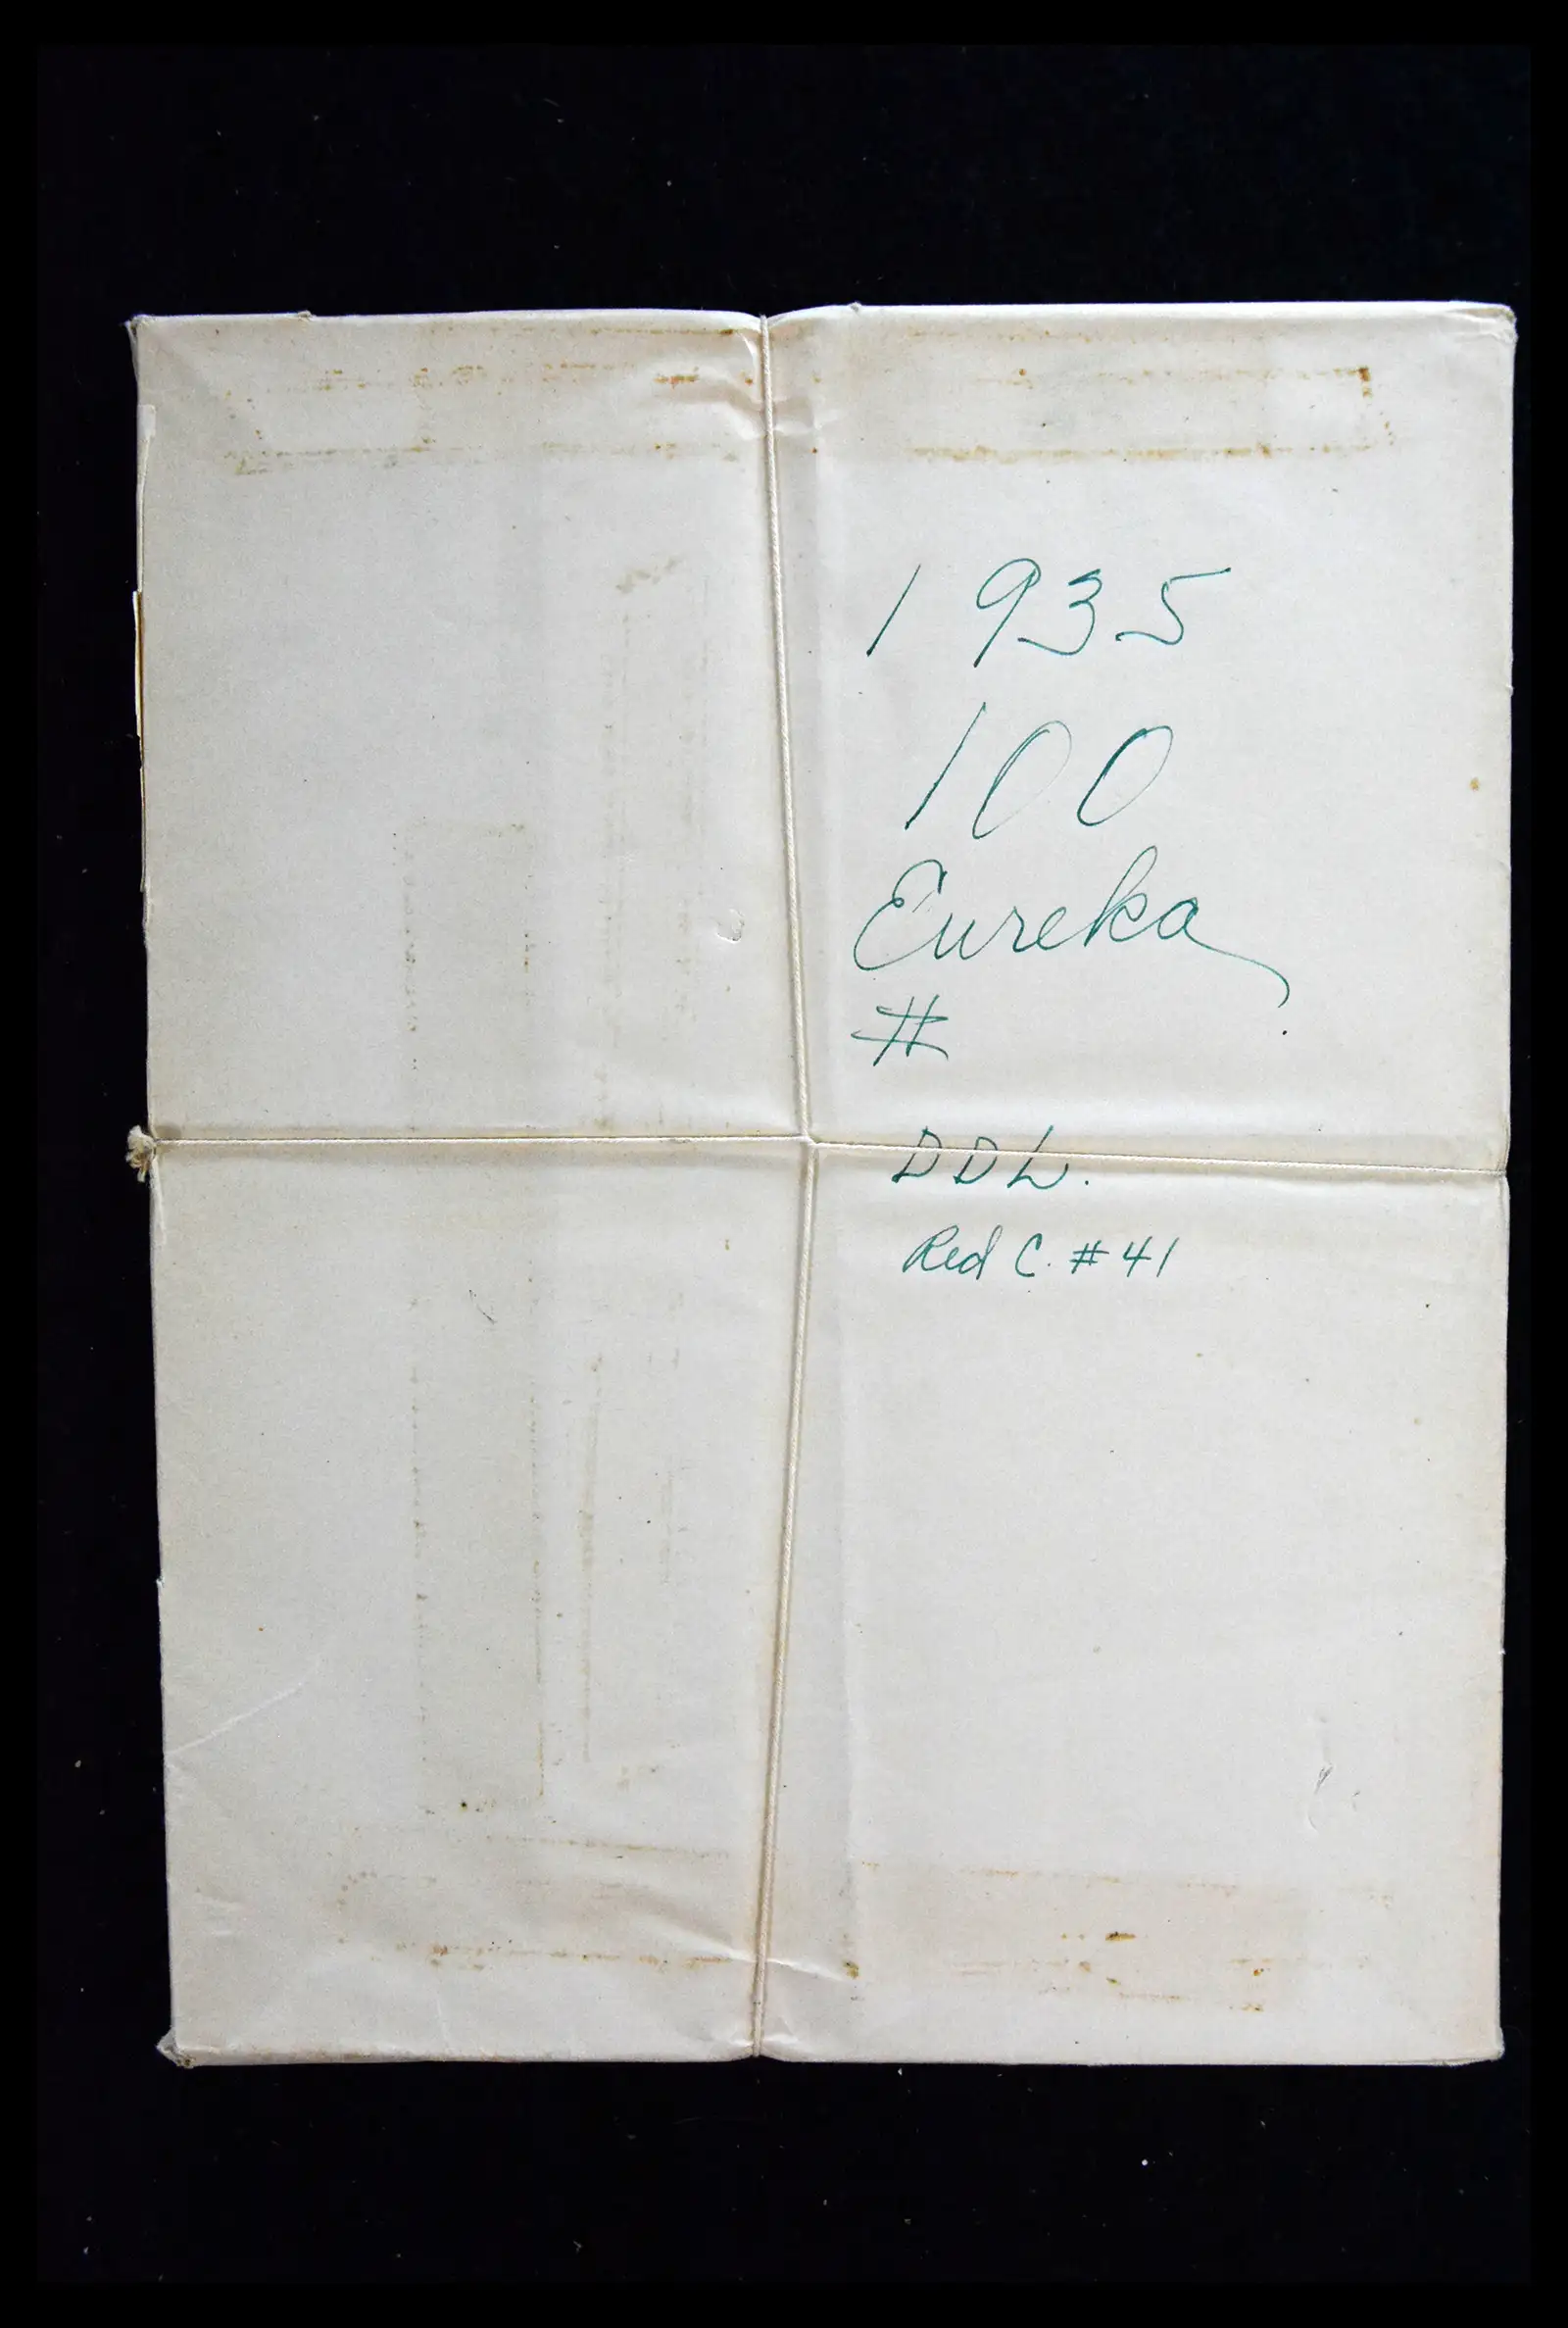 1935
100
Eureka
#
DDL.
Red C. #41